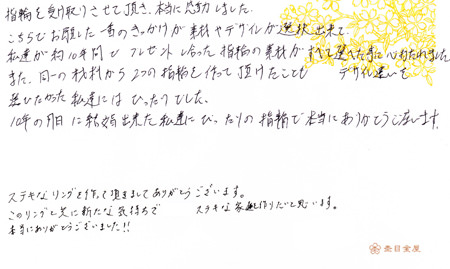 指輪を受け取りさせて頂き、本当に感動しました。
こちらでお願した一番のきっかけが素材やデザインが選択出来て
私達が約10年間でプレゼントし合った指輪の素材がすべて選べた事に心ひかれました。
また、同一の材料から2つの指輪を作って頂けたことも デザイン違いを
選びたかった私達にはぴったりでした。
10年の月日に結婚出来た私達にぴったりの指輪で本当にありがとうございます。
ステキなリングを作って頂きましてありがとうございます。
このリングと共に新たな気持ちで ステキな家庭作りだと思います。
本当にありがとうございました!!
杢目金屋